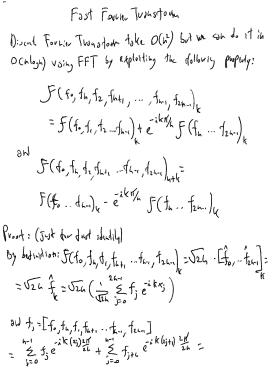 Fast Fourier Transform
Discret Fourier Transform take O(n²) but we can do it in
O(n log n) using FFT by exploiting the following property:
F(f₀, f_h, f₁, f_{h+1}, ..., f_{h-1}, f_{2h-1})_k
= F(f₀, f₁, f₂ ... f_{h-1})_k + e^{-ikπ/h} F(f_h ... f_{2h-1})_k
and
F(f₀, f_h, f₁, f_{h+1} ... f_{h-1}, f_{2h-1})_{h+k} =
F(f₀ ... f_{h-1})_k - e^{-ikπ/h} F(f_h ... f_{2h-1})_k
Proof: (just for first identity)
By definition: F(f₀, f_h, f₁, f_{h+1} ... f_{h-1}, f_{2h-1})_k = √2h · [f̂₀, ... f̂_{2h-1}]_k =
= √2h f̂_k = √2h (1/√2h Σ_{j=0}^{2h-1} f_j e^{-ikx_j})
and f_j = [f₀, f_h, f₁, f_{h+1} ... f_{h-1}, f_{2h-1}]
= Σ_{j=0}^{h-1} f_j e^{-ik(2j)2π/2h} + Σ_{j=0}^{h-1} f_{j+h} e^{-ik(2j+1)2π/2h} =